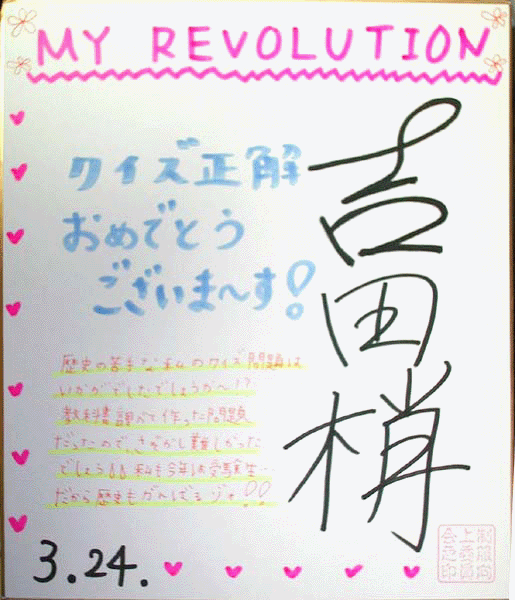 MY REVOLUTION
クイズ正解
おめでとう
ございま〜す!
吉田梢
歴史の苦手な私のクイズ問題は
いかがでしたでしょうか〜!?
教科書調べて作った問題
だったので、さぞかし難しかった
でしょう 私も今年は受験生…
だから歴史もがんばるゾォ!!
3.24.
制服向
上委員
会之印